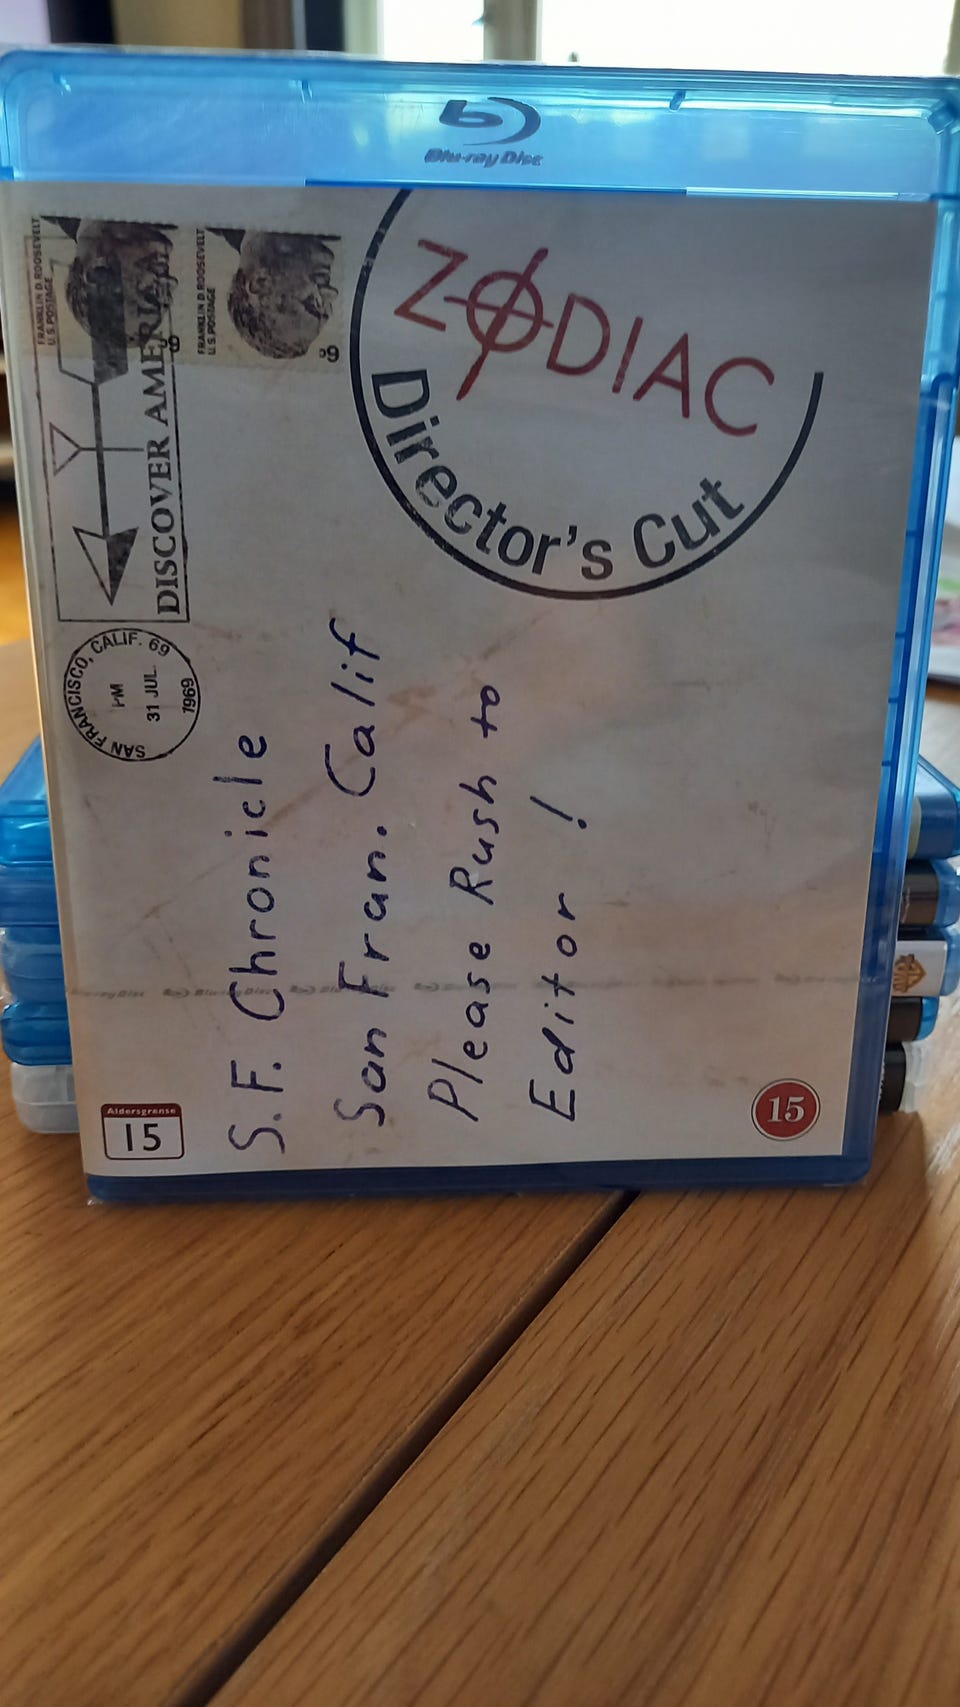 Blu-ray Disc
ZODIAC
Director's Cut
FRANKLIN D. ROOSEVELT
U.S. POSTAGE
6¢
FRANKLIN D. ROOSEVELT
U.S. POSTAGE
6¢
DISCOVER AMERICA
SAN FRANCISCO, CALIF. 69
PM
31 JUL
1969
S.F. Chronicle
San Fran. Calif
Please Rush to
Editor!
Aldersgrense
15
15